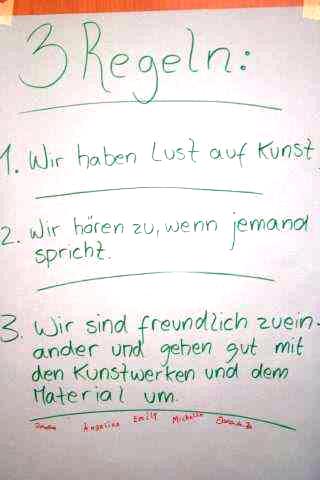 3 Regeln:
1. Wir haben Lust auf Kunst
2. Wir hören zu, wenn jemand
spricht.
3. Wir sind freundlich zuein-
ander und gehen gut mit
den Kunstwerken und dem
Material um.
Angelina Emily Michelle